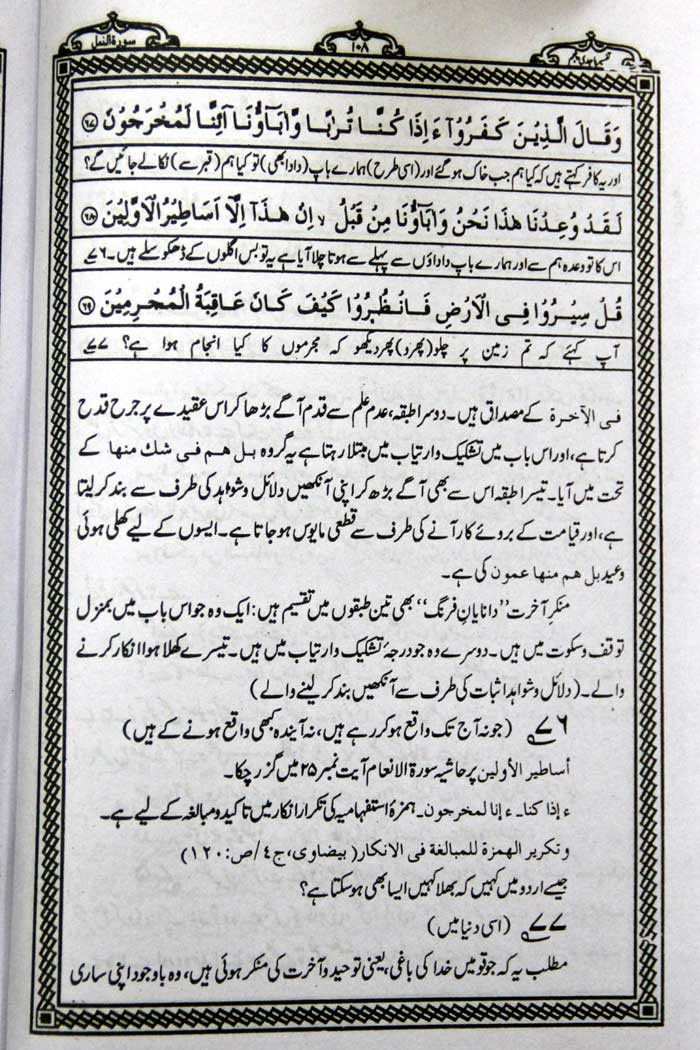 سورۃ النمل
۱۰۸
تفسیر ماجدی پنجم
وَقَالَ الَّذِيْنَ كَفَرُوْٓا ءَ اِذَا كُنَّا تُرٰبًا وَّاٰبَآؤُنَآ اَئِنَّا لَمُخْرَجُوْنَ ۶۷
اور یہ کافر کہتے ہیں کہ کیا ہم جب خاک ہو گئے اور (اسی طرح) ہمارے باپ (دادا بھی) تو کیا ہم (قبر سے) نکالے جائیں گے؟
لَقَدْ وُعِدْنَا هٰذَا نَحْنُ وَاٰبَآؤُنَا مِنْ قَبْلُ لا اِنْ هٰذَآ اِلَّآ اَسَاطِيْرُ الْاَوَّلِيْنَ ۶۸
اس کا تو وعدہ ہم سے اور ہمارے باپ داداؤں سے پہلے سے ہوتا چلا آیا ہے یہ تو بس اگلوں کے ڈھکوسلے ہیں۔ ۷۶
قُلْ سِيْرُوْا فِى الْاَرْضِ فَانْظُرُوْا كَيْفَ كَانَ عَاقِبَةُ الْمُجْرِمِيْنَ ۶۹
آپ کہئے کہ تم زمین پر چلو (پھرو) پھر دیکھو کہ مجرموں کا کیا انجام ہوا ہے؟ ۷۷
فی الآخرة کے مصداق ہیں۔ دوسرا طبقہ، عدم علم سے قدم آگے بڑھا کر اس عقیدے پر جرح قدح
کرتا ہے، اور اس باب میں تشکیک وارتیاب میں مبتلا رہتا ہے یہ گروہ بل هم فی شك منها کے
تحت میں آیا۔ تیسرا طبقہ اس سے بھی آگے بڑھ کر اپنی آنکھیں دلائل وشواہد کی طرف سے بند کر لیتا
ہے، اور قیامت کے بروئے کار آنے کی طرف سے قطعی مایوس ہو جاتا ہے۔ ایسوں کے لیے کھلی ہوئی
وعید بل هم منها عمون کی ہے۔
منکرِ آخرت ’’دانایانِ فرنگ‘‘ بھی تین طبقوں میں تقسیم ہیں: ایک وہ جو اس باب میں بمنزل
توقف وسکوت میں ہیں۔ دوسرے وہ جو درجۂ تشکیک وارتیاب میں ہیں۔ تیسرے کھلا ہوا انکار کرنے
والے۔ (دلائل وشواہد اثبات کی طرف سے آنکھیں بند کر لینے والے)
۷۶ (جو نہ آج تک واقع ہو کر رہے ہیں، نہ آیندہ کبھی واقع ہونے کے ہیں)
أساطیر الأولین پر حاشیہ سورۃ الانعام آیت نمبر ۲۵ میں گزر چکا۔
ء إذا كنا۔ ء إنا لمخرجون۔ ہمزۂ استفہامیہ کی تکرار انکار میں تاکید ومبالغہ کے لیے ہے۔
وتكرير الهمزة للمبالغة فی الانكار (بیضاوی، ج٤/ص:۱۲۰)
جیسے اردو میں کہیں کہ بھلا کہیں ایسا بھی ہوسکتا ہے؟
۷۷ (اسی دنیا میں)
مطلب یہ کہ جو قومیں خدا کی باغی، یعنی توحید وآخرت کی منکر ہوئی ہیں، وہ باوجود اپنی ساری